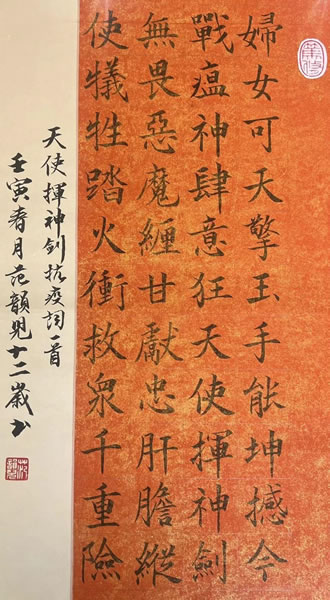 婦女可天擎玉手能坤撼今
戰瘟神肆意狂天使揮神劍
無畏惡魔纏甘獻忠肝膽縱
使犧牲踏火衝救衆千重險
天使揮神劍抗疫詞一首
壬寅春月范韻児十二歲书